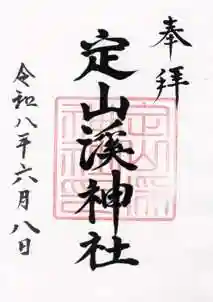 奉拝
定山溪神社
令和八年六月八日